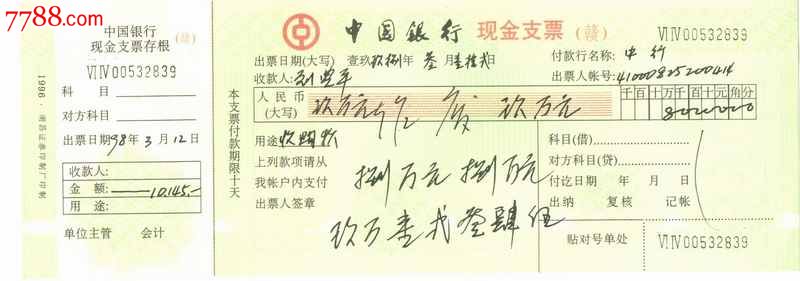 7788.com
中国银行
现金支票存根 (赣)
VIIV00532839
科 目
对方科目
出票日期98年3月12日
收款人:
金 额: 10,145.-
用 途:
单位主管 会计
1996·
中國銀行 现金支票 (赣) VIIV00532839
出票日期(大写) 壹玖玖捌年 叁月壹拾贰日 付款行名称: 中行
收款人: 出票人帐号:
本支票付款期限十天
人民币
(大写) 玖万元 作废 玖万元
千百十万千百十元角分
用途收购款
上列款项请从
我帐户内支付
出票人签章
捌万元 捌万元
玖万壹贰叁肆伍
科目(借)
对方科目(贷)
付讫日期 年 月 日
出纳 复核 记帐
贴对号单处 VIIV00532839